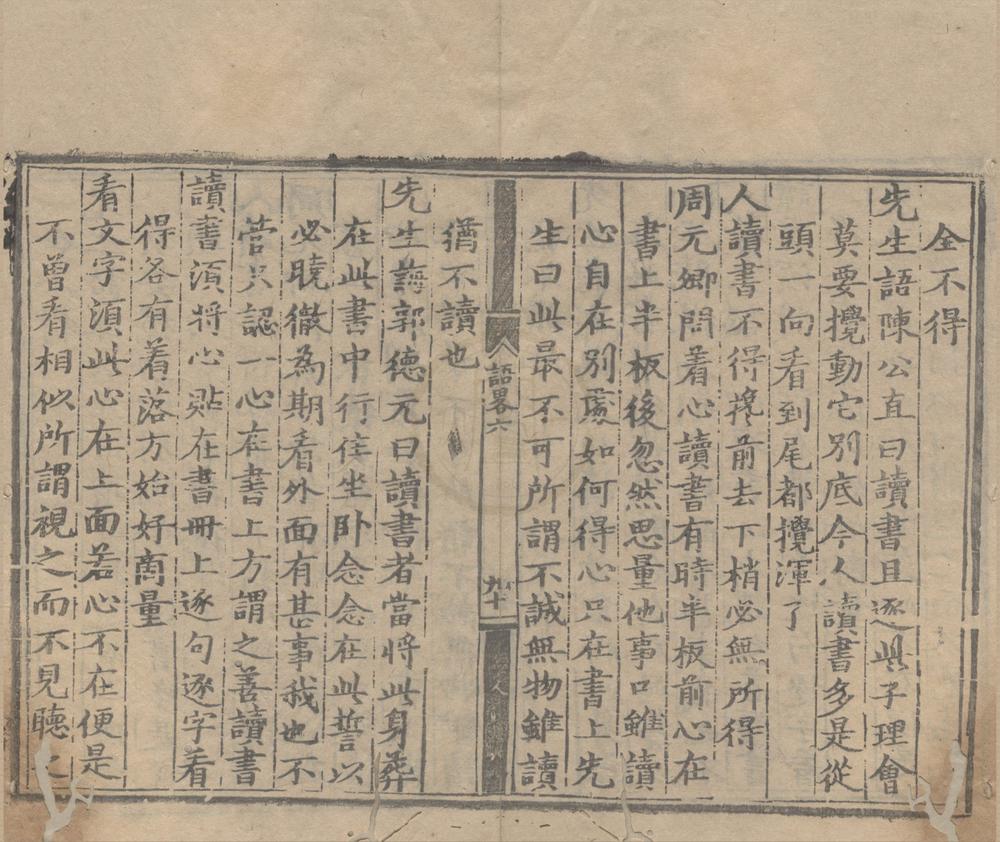 金不得
先生語陳公直曰讀書且逐些子理會
莫要攪動它別底今人讀書多是從
頭一向看到尾都攪渾了
人讀書不得攙前去下梢必無所得
周元卿問着心讀書有時半板前心在
書上半板後忽然思量他事口雖讀
心自在別處如何得心只在書上先
生曰此最不可所謂不誠無物雖讀
語畧六
九十
猶不讀也
先生誨郭德元曰讀書者當將此身葬
在此書中行住坐卧念念在此誓以
必曉徹為期看外面有甚事我也不
管只認一心在書上方謂之善讀書
讀書須將心貼在書冊上逐句逐字看
得各有着落方始好商量
看文字須此心在上面若心不在便是
不曾看相似所謂視之而不見聽之